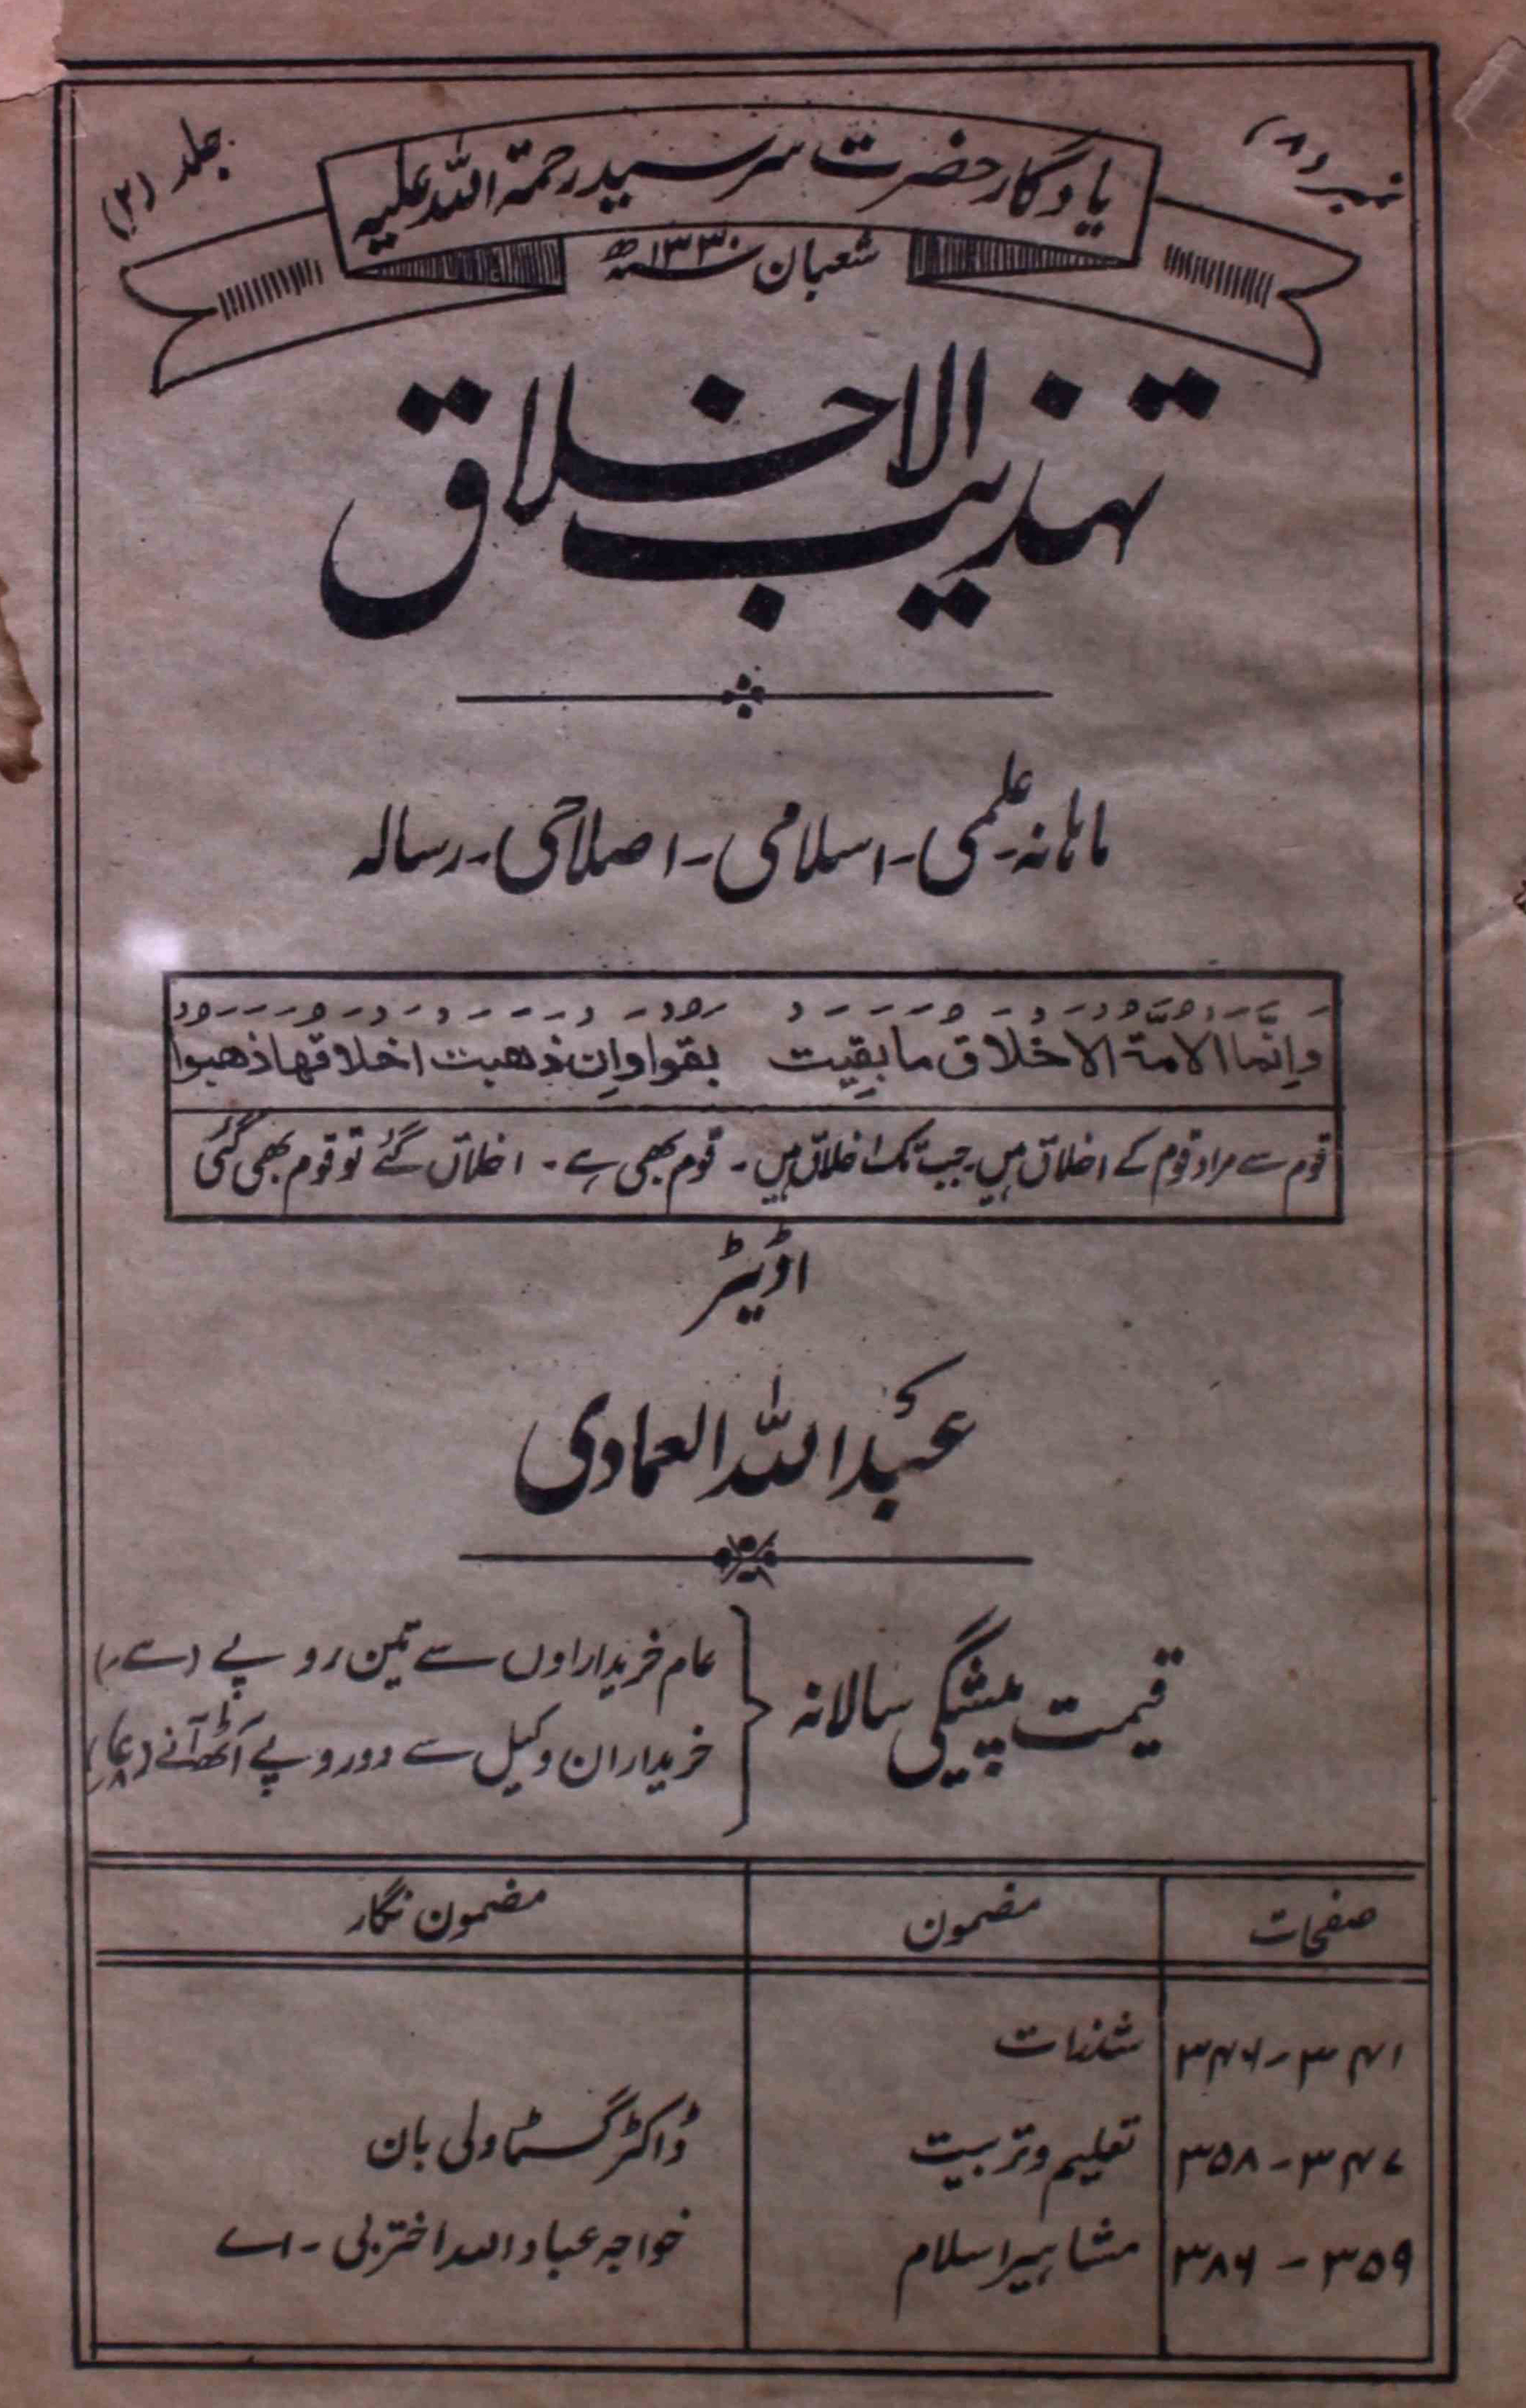 نمبر (۸)
یادگار حضرت سرسید رحمۃ اللہ علیہ
جلد (۲)
شعبان ۱۳۳۰ھ
تہذیب الاخلاق
ماہانہ - علمی - اسلامی - اصلاحی - رسالہ
وَاِنَّمَا الْاُمَّةُ الْاَخْلَاقُ مَا بَقِيَتْ بَقُوْا وَاِنْ ذَهَبَتْ اَخْلَاقُهَا ذَهَبُوْا
قوم سے مراد قوم کے اخلاق ہیں۔ جب تک اخلاق ہیں - قوم بھی ہے - اخلاق گئے تو قوم بھی گئی
اڈیٹر
عبد اللہ العمادی
قیمت پیشگی سالانہ
عام خریداراوں سے تین روپے
خریداران وکیل سے دو روپے آٹھ آنے
صفحات مضمون مضمون نگار
۳۴۱ - ۳۴۶ شذرات
۳۴۷ - ۳۵۸ تعلیم و تربیت ڈاکٹر گستاولی بان
۳۵۹ - ۳۸۶ مشاہیر اسلام خواجہ عباداللہ اختر بی - اے